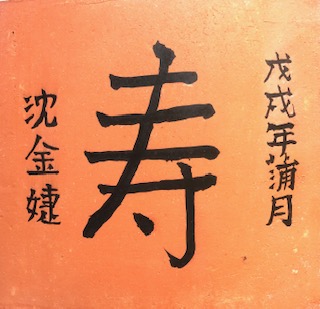 戊戌年蒲月
寿
沈金婕